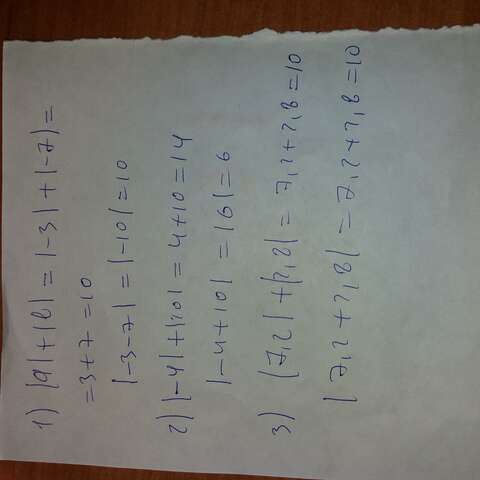 1) |a|+|b|=|-3|+|-7|=
=3+7=10
|-3-7|=|-10|=10
2) |-4|+|10|=4+10=14
|-4+10|=|6|=6
3) |7,2|+|2,8|=7,2+2,8=10
|7,2+2,8|=7,2+2,8=10